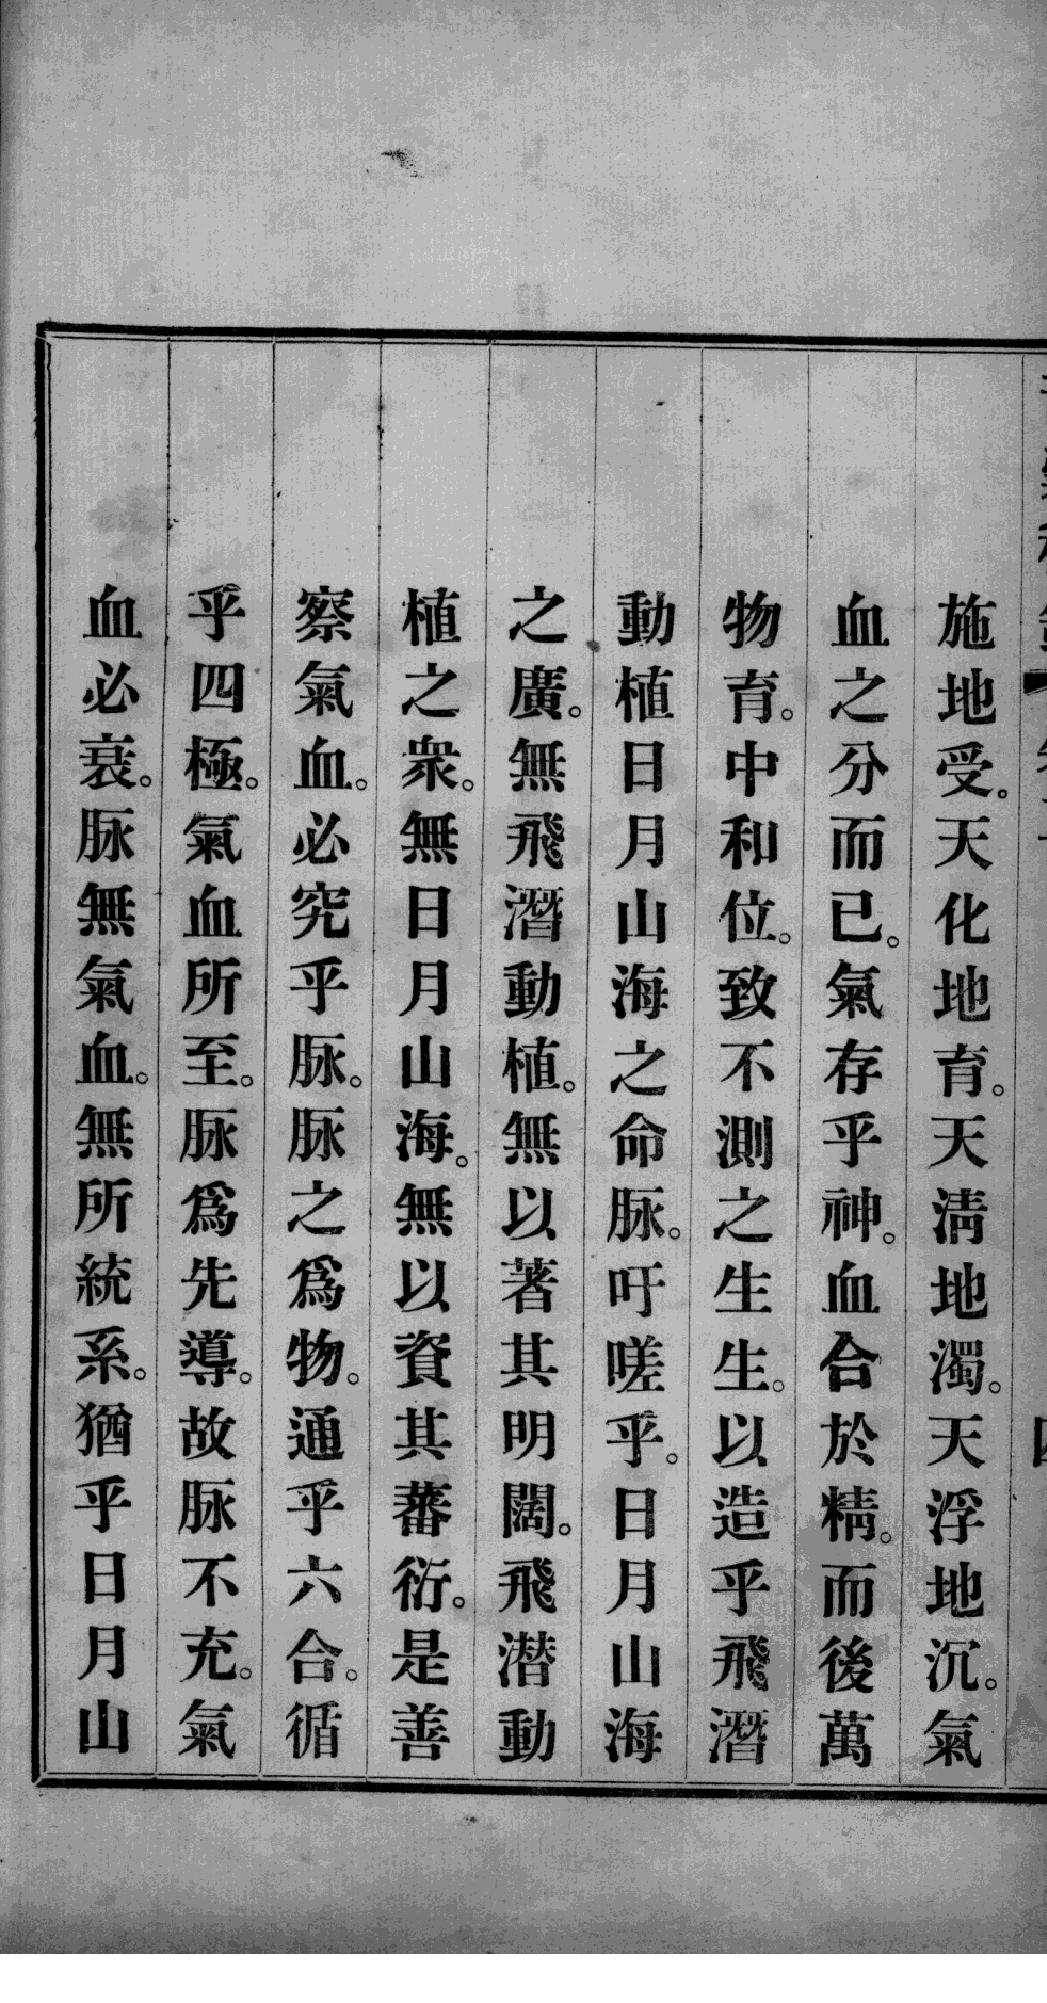 施地受。天化地育。天清地濁。天浮地沉。氣
血之分而已。氣存乎神。血合於精。而後萬
物育。中和位。致不測之生生。以造乎飛潛
動植日月山海之命脉。吁嗟乎。日月山海
之廣。無飛潛動植。無以著其明闊。飛潜動
植之衆。無日月山海。無以資其蕃衍。是善
察氣血。必究乎脉。脉之爲物。通乎六合。循
乎四極。氣血所至。脉爲先導。故脉不充。氣
血必衰。脉無氣血。無所統系。猶乎日月山